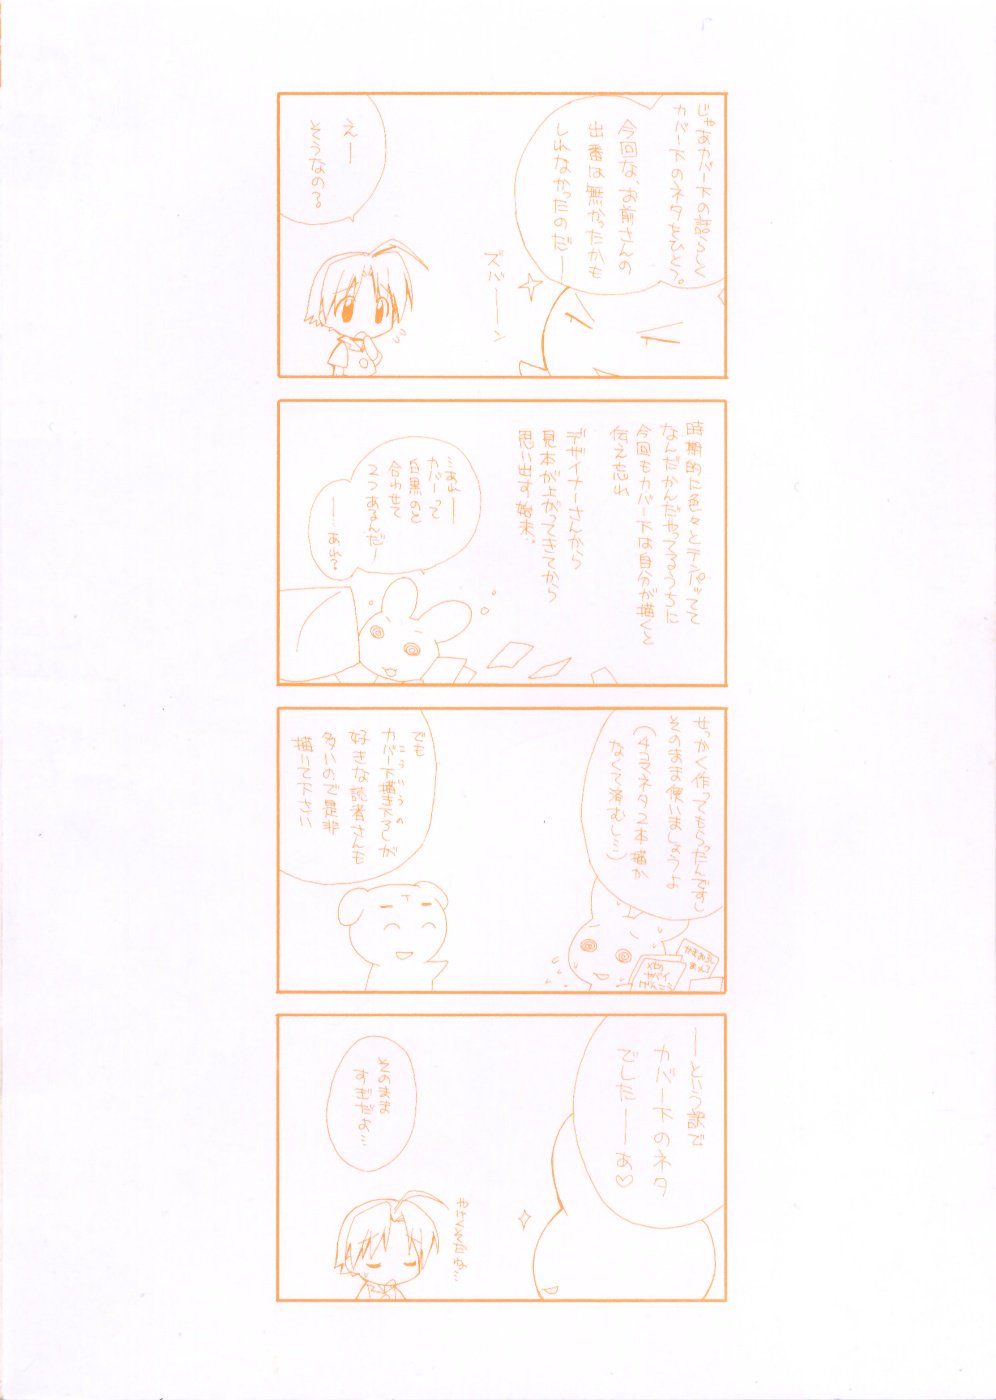 じゃあカバー下の話らしく
カバー下のネタをひとつ。
今回な、お前さんの
出番は無かったかも
しれなかったのだー
ズバーーン
えー
そうなの？
時期的に色々とテンパってて
なんだかんだやってるうちに
今回もカバー下は自分が描くと
伝え忘れ
デザイナーさんから
見本が上がってきてから
思い出す始末…
…あれー
カバーって
白黒のと
合わせて
2つあるんだー
ーーあれ？
せっかく作ってもらったんですし
そのまま使いましょうよ
(4コマネタ2本描か
なくて済むし…)
でも
こういうの
カバー下描き下ろしが
好きな読者さんも
多いので是非
描いて下さい
ーーという訳で
カバー下のネタ
でしたーーぁ♡
そのまま
すぎだよ…
やけくそだね…